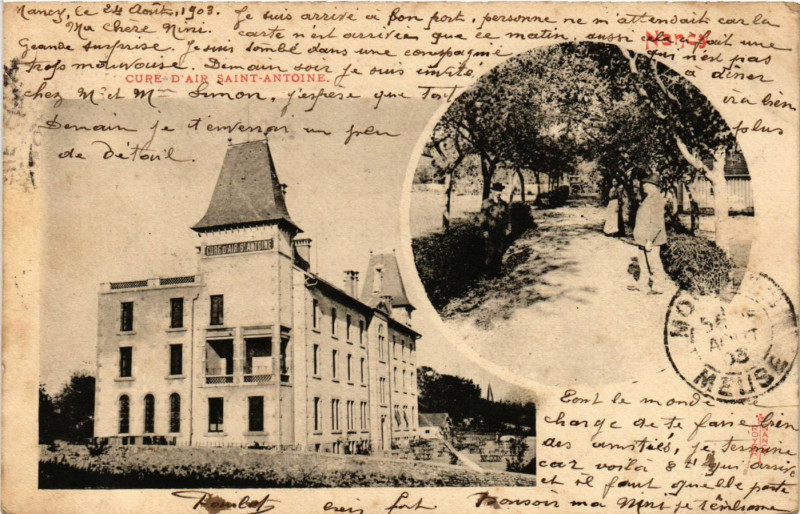 Nancy, le 24 Août, 1903. Je suis arrivé à bon port, personne ne m'attendait car la
Ma chère Nini. carte n'est arrivée que ce matin, aussi elle fait une
grande surprise. Je suis tombé dans une compagnie qui n'est pas
trop mauvaise. Demain soir je suis invité, à dîner
chez Mr et Mme Simon, j'espère que tout ira bien
Demain je t'enverrai un peu plus
de détail.
Nancy
CURE D'AIR SAINT-ANTOINE.
CURE D'AIR St ANTOINE
AOUT
MEUSE
Tout le monde me
charge de te faire bien
des amitiés, je termine
car voilà 8h qui arrive
et il faut qu'elle parte
bonsoir ma Nini je t'embrasse
fort